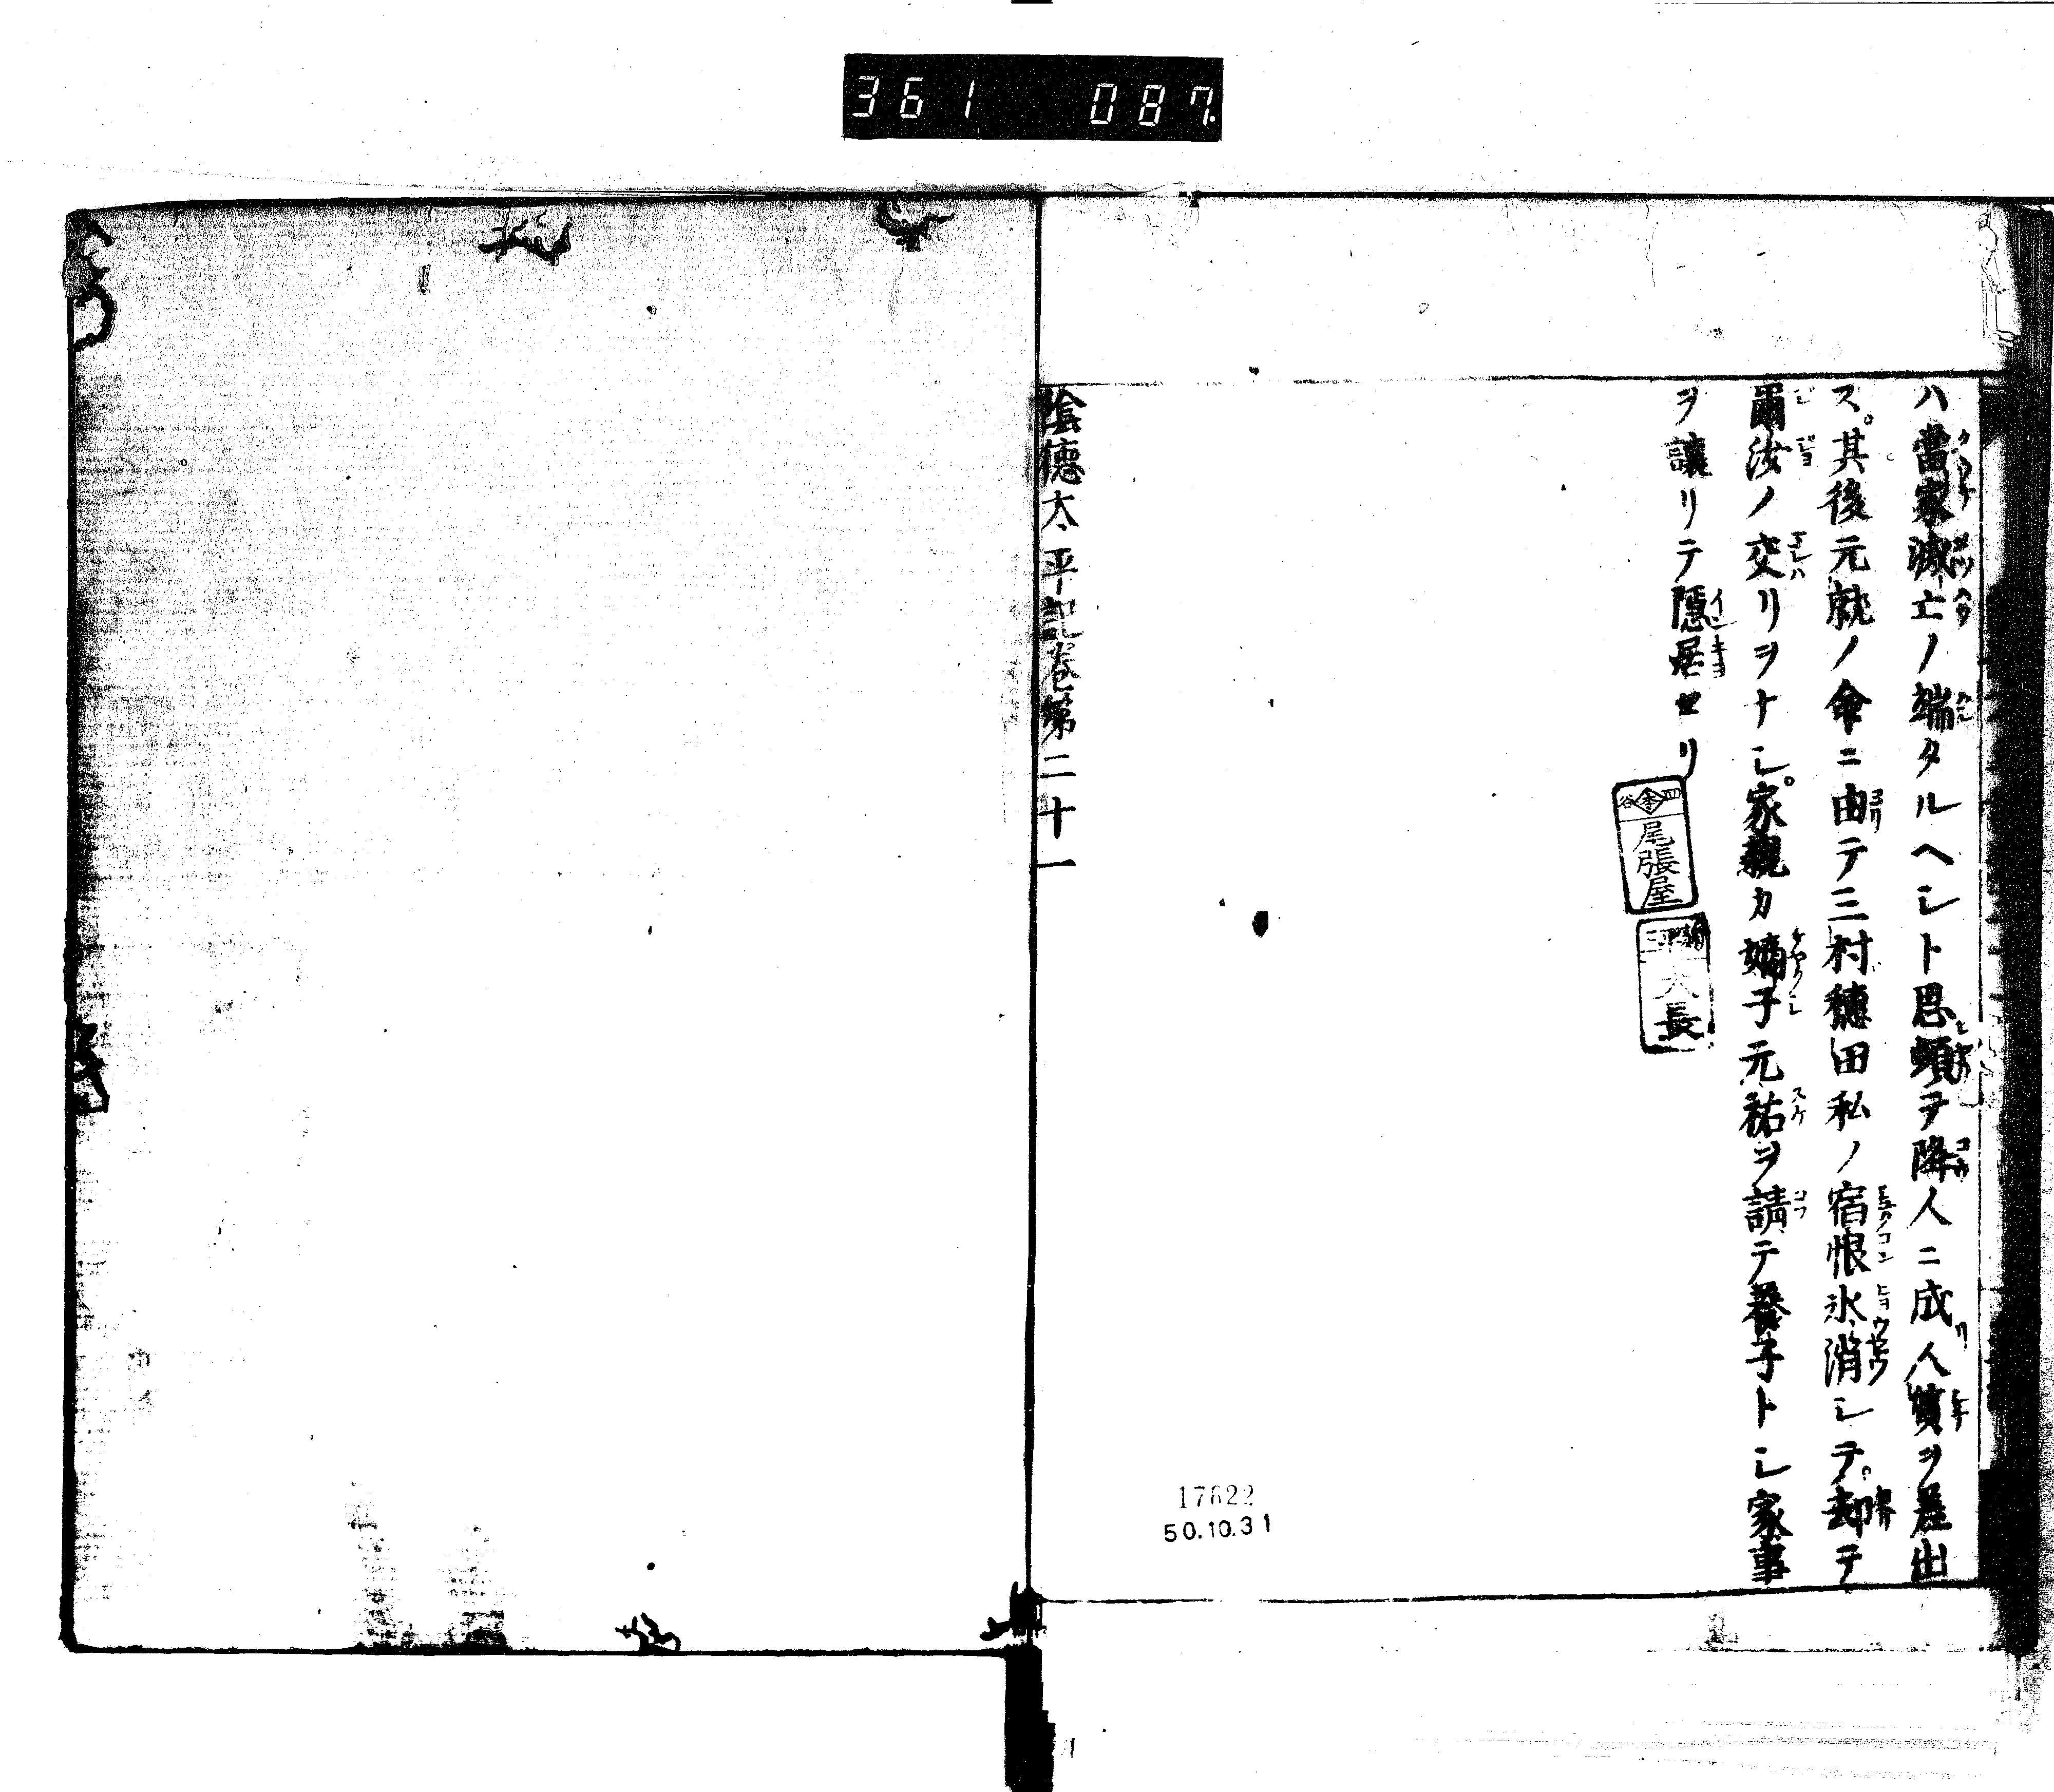 361 087
ハ當家滅亡ノ端タルヘシト思頓ヲ降人ニ成人質ヲ差出
ス其後元就ノ命ニ由テ三村穂田私ノ宿恨氷消シテ却テ
爾汝ノ交リヲナシ家親カ嫡子元祐ヲ請テ養子トシ家事
ヲ讓リテ隱居セリ
尾張屋
大長
陰德太平記卷第二十一
17622
50.10.31